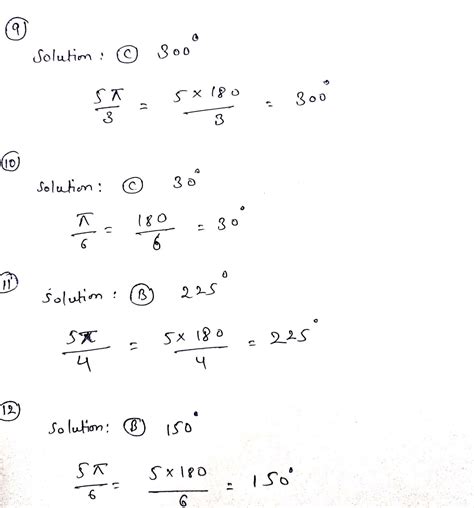 9
Solution: C 300°
5π/3 = 5 × 180/3 = 300°
10
Solution: C 30°
π/6 = 180/6 = 30°
11
Solution: B 225°
5π/4 = 5 × 180/4 = 225°
12
Solution: B 150°
5π/6 = 5 × 180/6 = 150°